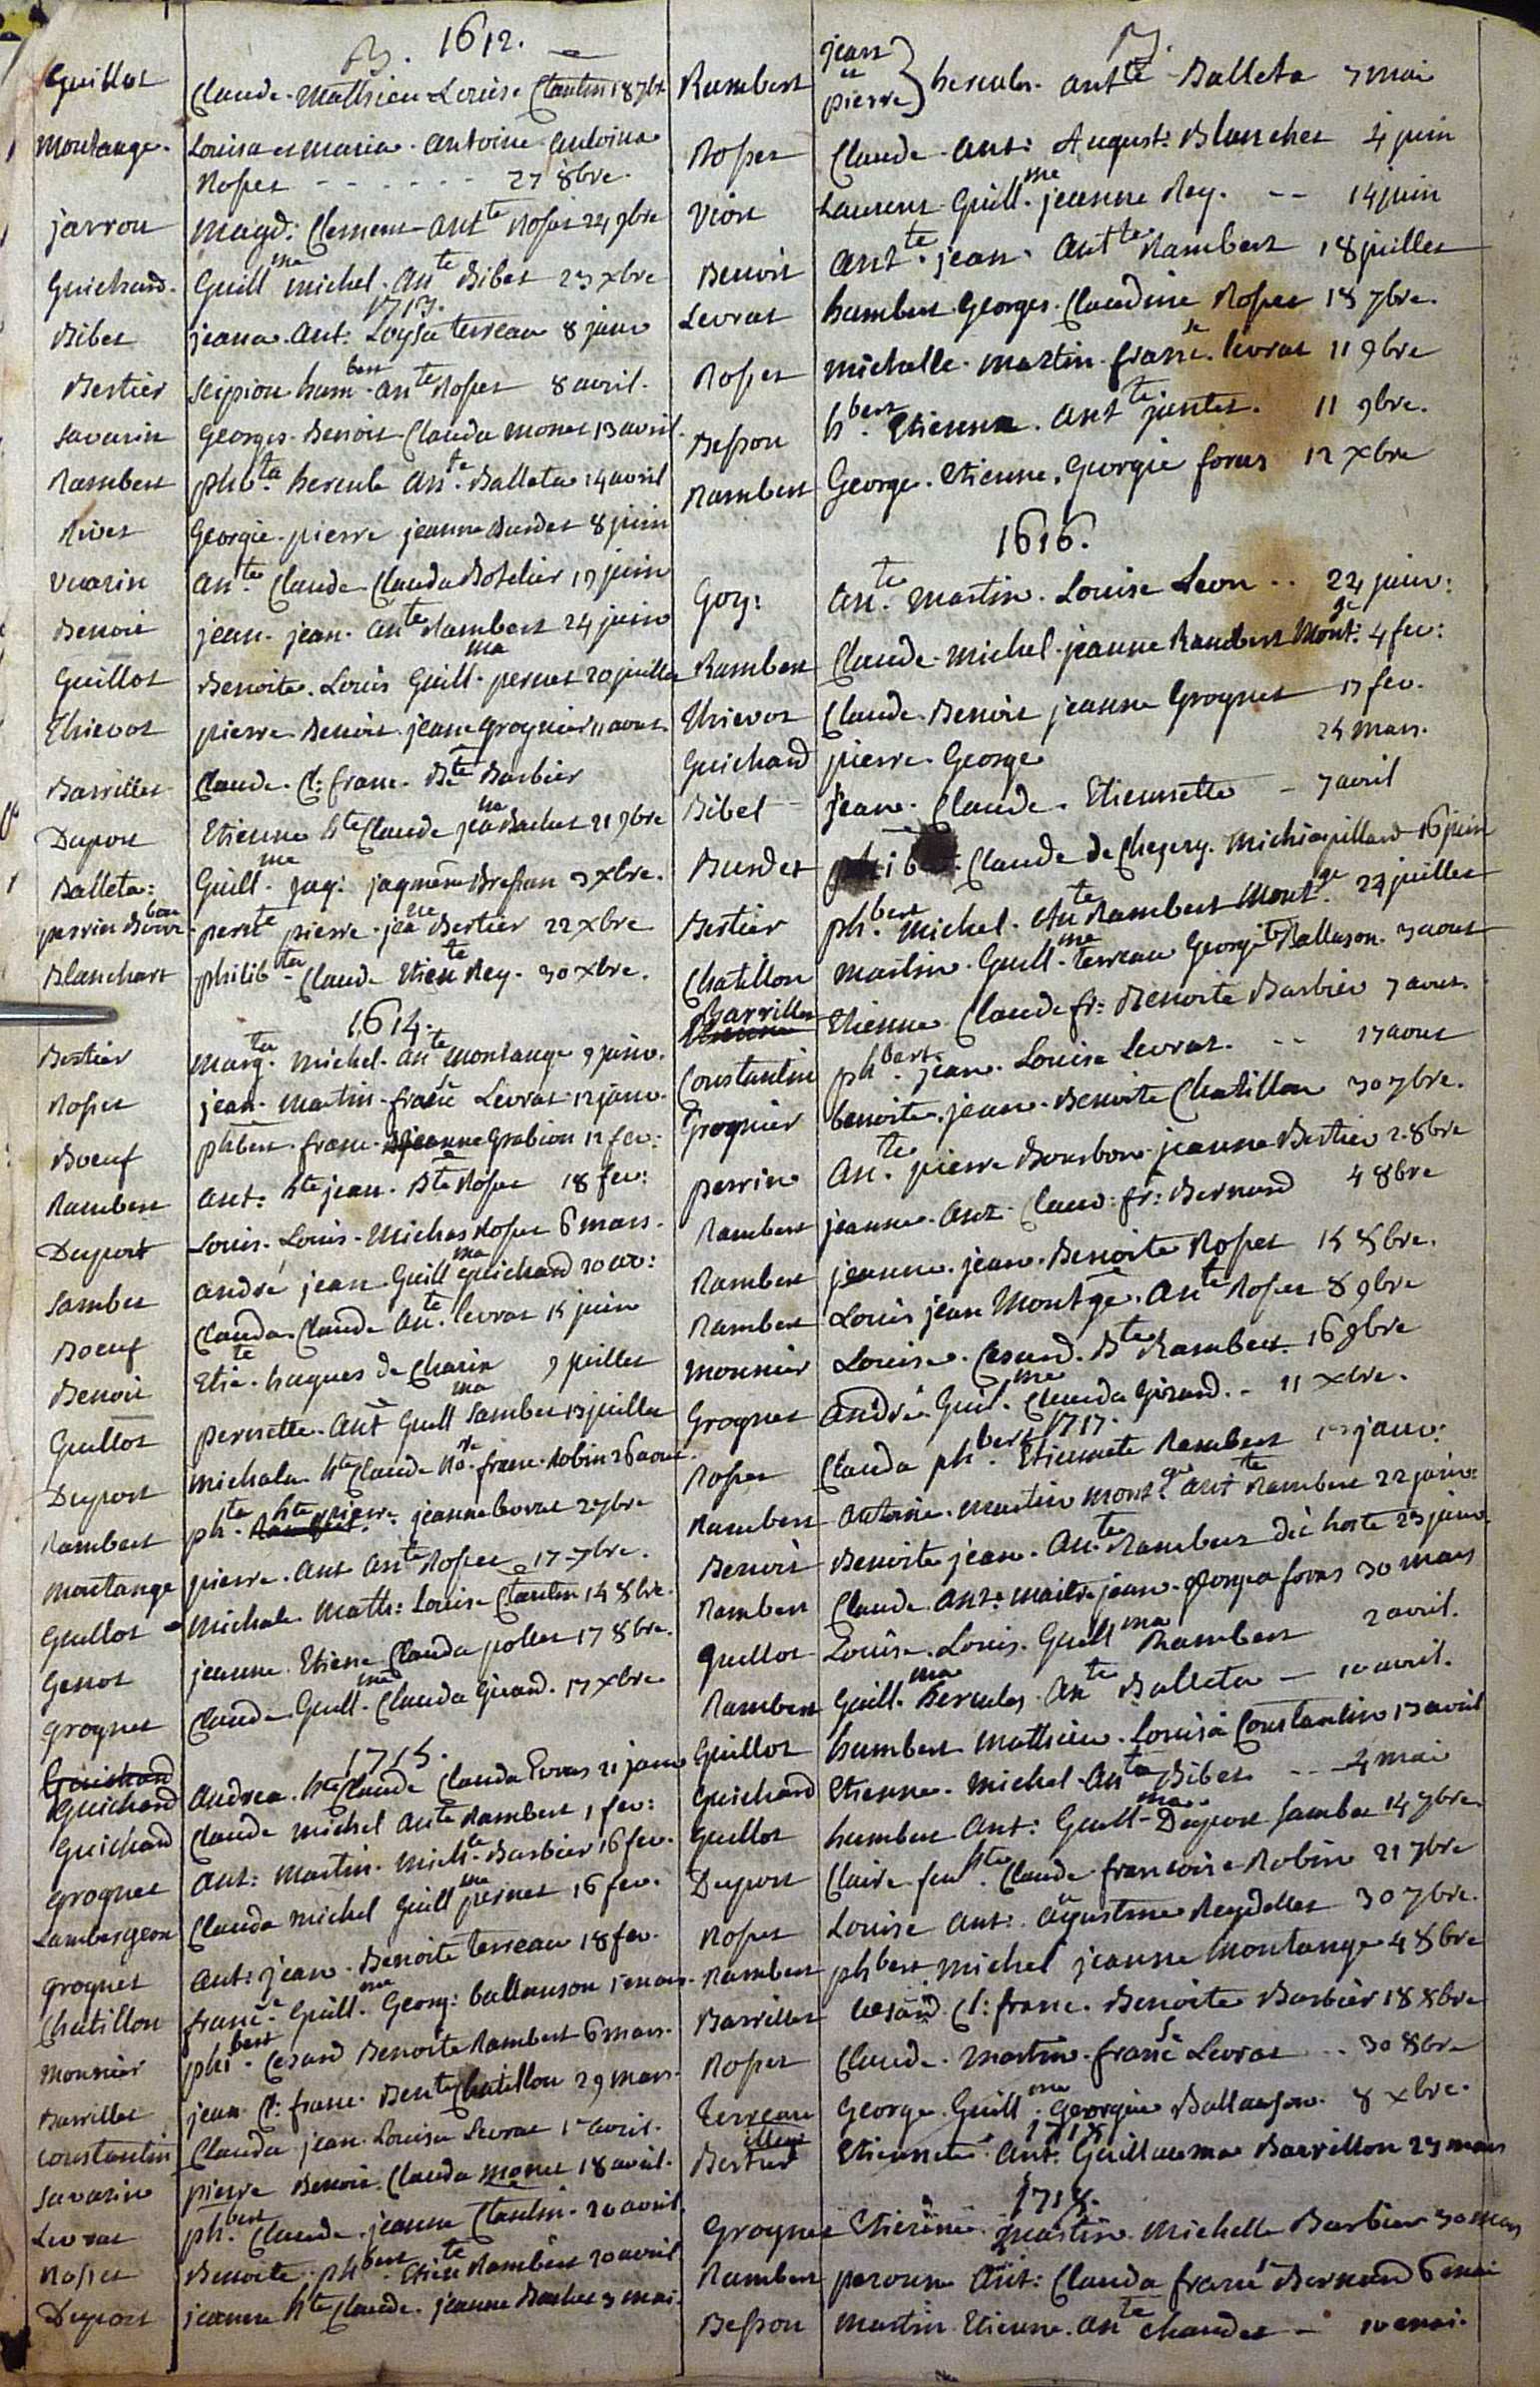 1612.
Guillot Claude. Mathieu Louise Ctantin 18 7bre
Montange. Louisa et maria. antoine antoina
Rosset - - - - - - 27 8bre.
jarrou magd: Clement antte Rosset 24 9bre
Guichard. Guillme michel. ante Bibet 23 xbre
1713.
Bibet jeana. ant: Loysa terreau 8 janv
Bertier Scipion humbert. ante Rosset 8 avril.
Savarin Georges. Benoit Clauda monet 13 avril.
Rambert phbta. hercule ante. Balleta 14 avril
Rivet Georgie. pierre jeanne Burdet 8 juin
Vuarin ante. Claude Clauda Botelier 17 juin
Benoit jean. jean. ante Rambert 24 juin
Guillot Benoite. Louis Guillma. pernet 20 juillet
Thievot pierre Benoit. jeane grognier 11 aout
Barrillet Claude. Cl: franc. Bte Barbier
Dupont Etienne hte Claude jeana Bachet 21 9bre
Balleta: Guillme. jaq: jaqmene Bressan 3 xbre.
perrin Bourbon pernte pierre. jeane Bertier 22 xbre
Blanchart philibta Claude Etiente Rey. 30 xbre.
1614.
Bertier margta. michel. ante montange 9 janv.
Rosset jean. martin. franse Levrat 12 janv.
Boeuf phbert. franc. jeanne Grabion 12 fev:
Rambert ant: hte jean. Bte Rosset 18 fev:
Dupont Louis. Louis. Micha Rosset 6 mars.
Sambet andré jean. Guillma guichard 20 av:
Boeuf Clauda. Claude ante. levrat 15 juin
Benoit Etiete. hugues de Charin 9 juillet
Guillot pernette. ant Guillma Sambet 13 juillet
Dupont michala hte Claude franc. Robin 26 aout.
Rambert phta. hte pierre. jeanne levrat 27bre
Montange pierre. ant ante Rosset 17 7bre.
Guillot michale Math: Louise Ctantin 14 8bre.
Genot jeanne. Etiene Clauda pollet 17 8bre.
Grognet Claude. Guillme. Clauda Girard. 17 xbre
1715.
Guichard
Guichard andrea. hte Claude Clauda 21 janv
Guichard Claude michel ante Rambert 1 fev:
Grognet ant: martin. michte Barbier 16 fev.
Lambergeon Clauda michel Guillma pernet 16 fev.
Grognet ant: jean. Benoite terreau 18 fev.
Chatillon france. Guillme. Georg: ballanson mars.
Monnier phibert. Cesard Benoite Rambert 6 mars.
Barrillet jean. Cl: franc. Bente Chatillon 29 mars.
Constantin Clauda. jean. Louisa Levrat avril.
Savarin pierre Benoit. Clauda monet 18 avril.
Levrat phbert. Claude. jeanne Ctantin. 20 avril.
Rosset Benoite. phbert. Etiete Rambert 20 avril
Dupont jeanne hte Claude. jeanne Bachet 3 mai.
Rambert jean et pierre } hercules. antte Balleta 3 mai
Rosset Claude. ant: August: Blanchet 4 juin
Vion Laurent Guillme. jeanne Rey. -- 14 juin
Benoit antte. jean. antte Rambert 18 juillet
Levrat humbert. Georges. Claudine Rosset 18 7bre.
Rosset michelle. martin. franse. levrat 11 9bre
Besson hbert. Etienne. antte jantet. 11 9bre.
Rambert George. Etienne. Georgie foras 12 xbre
1616.
Goy: ante. martin. Louise Leon .. 22 janv:
Rambert Claude. michel. jeanne Rambert Montge: 4 fev:
Thievot Claude. Benoit jeanne Grognet 17 fev.
Guichard pierre. George 24 mars.
Bibet jean. Claude. Etiennette - 7 avril
Burdet Claude de Chegery. 16 juin
Bertier phbert. michel. ante Rambert Montge. 24 juillet
Chatillon martin. Guillme. terreau Georgite Ballason. 3 aout
Barrillet
Etienne. Claude fr: Benoite Barbier 7 aout.
Constantin phbert. jean. Louise Levrat. .. 17 aout
Grognier benoite. jean. Benoite Chatillon 30 7bre.
perrin ante. pierre Bourbon. jeanne Bertier 2 8bre
Rambert jeanne. ant. Claud: fr: Bernard 4 8bre
Rambert jeanne. jean. Benoite Rosset 15 8bre.
Rambert Louis jean Montge. ante Rosset 8 9bre
Monnier Louise. Cesard. Bte Rambert. 16 9bre
Grognet andré Guilme. Clauda Girard. - 11 xbre.
1717.
Rosset Clauda phbert. Etiennete Rambert janv:
Rambert antoine. martin montge. antte Rambert 22 janv:
Benoit Benoite jean. ante Rambert dit hoste 23 janv.
Rambert Claude. ant: maitre jean. foras 30 mars
Guillot Louise. Louis. Guillma Rambert 2 avril.
Rambert Guillme. hercules. ante Balleta - 10 avril.
Guillot humbert Mathieu. Louisa Constantin 13 avril
Guichard Etienne. michel ante Bibet -- 4 mai
Guillot humbert ant: Guillma Dupont Sambet 14 7bre
Dupont Claire hte. Claude francoise Robin 21 7bre
Rosset Louise ant: agustine Reydellet 30 7bre.
Rambert phbert michel jeanne montange 4 8bre
Barrillet Cesard Cl: franc. Benoite Barbier 18 8bre
Rosset Claude. martin. franse Levrat .. 30 8bre
Terreau George. Guillme. Georgine Ballanson. 8 xbre.
Bertier Etiennete ant: Guillauma Barrillon 23 mars
1718.
Grognet Etienne. martin. Michelle Barbier 30 mars
Rambert peronne ant: Clauda franse Bernard 6 mai
Besson martin Etienne. ante chaudet - 10 mai.